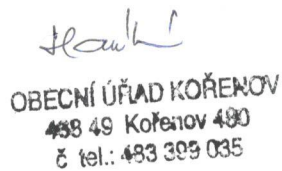 OBECNÍ ÚŘAD KOŘENOV
468 49 Kořenov 480
č tel.: 483 399 035